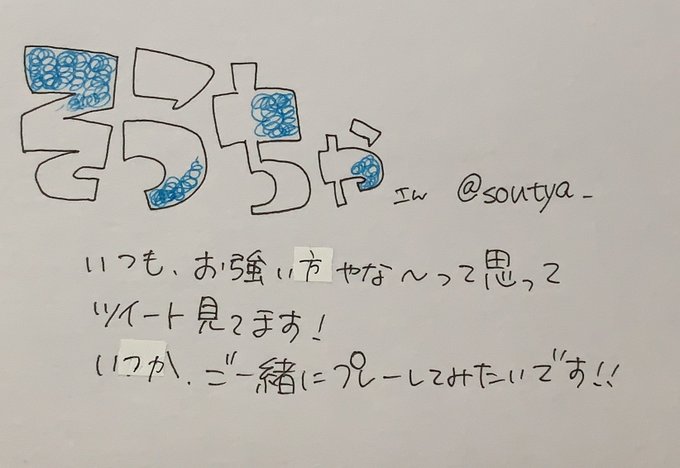 そうちゃ エw @soutya_
いつも、お強い方やな〜って思って
ツイート見てます!
いつか、ご一緒にプレーしてみたいです!!